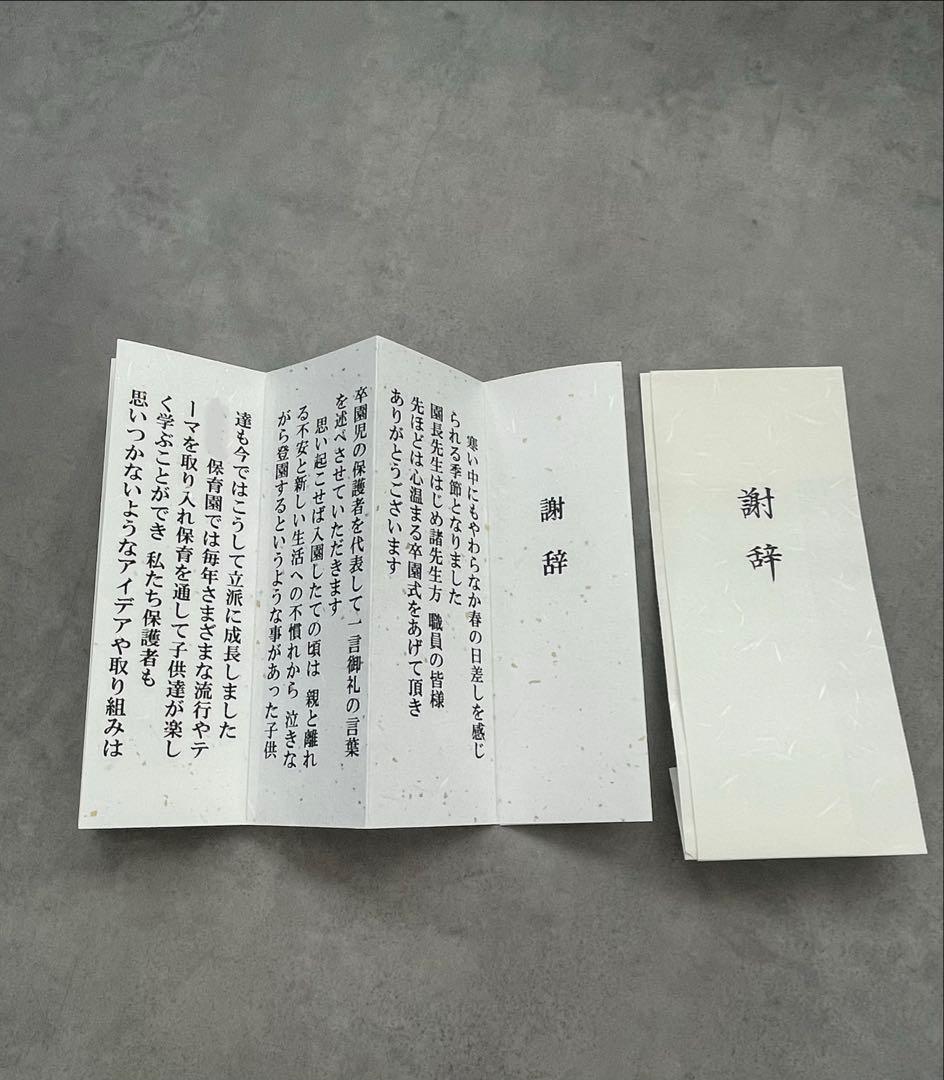 謝辞
寒い中にもやわらなか春の日差しを感じ
られる季節となりました
園長先生はじめ諸先生方 職員の皆様
先ほどは心温まる卒園式をあげて頂き
ありがとうございます
卒園児の保護者を代表して一言御礼の言葉
を述べさせていただきます
思い起こせば入園したての頃は 親と離れ
る不安と新しい生活への不慣れから 泣きな
がら登園するというような事があった子供
達も今ではこうして立派に成長しました
保育園では毎年さまざまな流行やテ
ーマを取り入れ保育を通して子供達が楽し
く学ぶことができ 私たち保護者も
思いつかないようなアイデアや取り組みは
謝辞